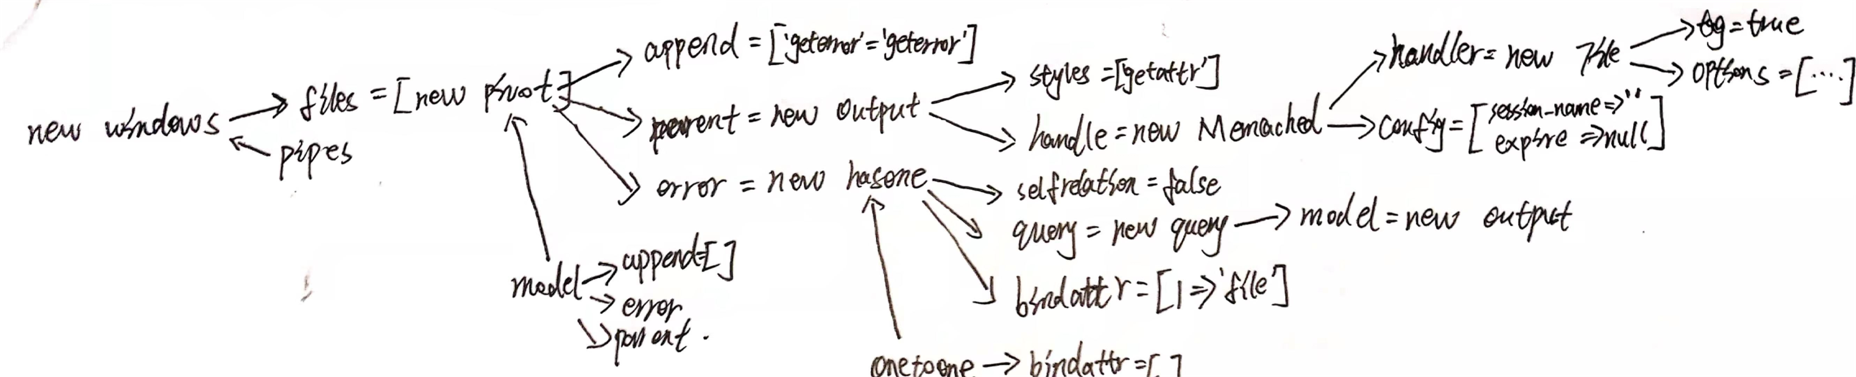 new windows → files = [new pivot]
← pipes
→ append = ['geterror'='geterror']
→ parent = new output
→ error = new hasone
→ styles = [getattr']
→ handle = new Memached
→ handler = new File
→ tag = true
→ options = [....]
→ config = [session-name => ''
expire => null]
→ selfrelation = false
query = new query → model = new output
bindattr = [1 => 'file']
model → append=[]
→ error
parent.
onetoone → bindattr = [ ]